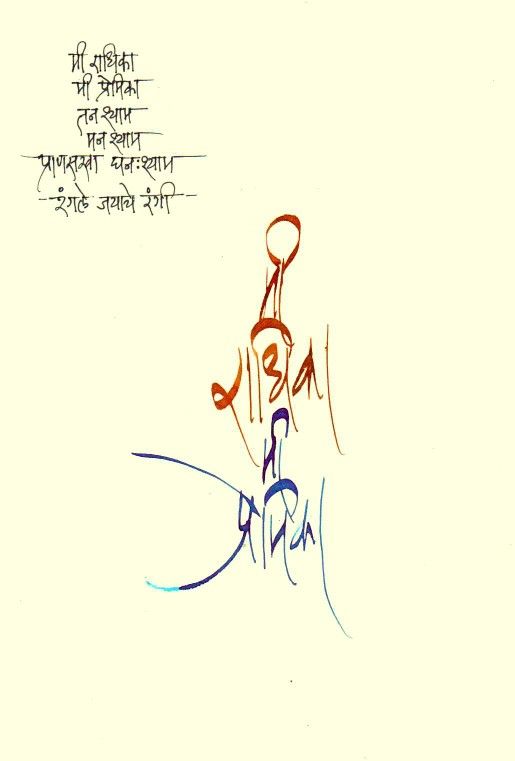 मी राधिका
मी प्रेमिका
तन श्याम
मन श्याम
प्राणसखा घनःश्याम
-रंगले जयाचे रंगी-
मी
राधिका
मी
प्रेमिका